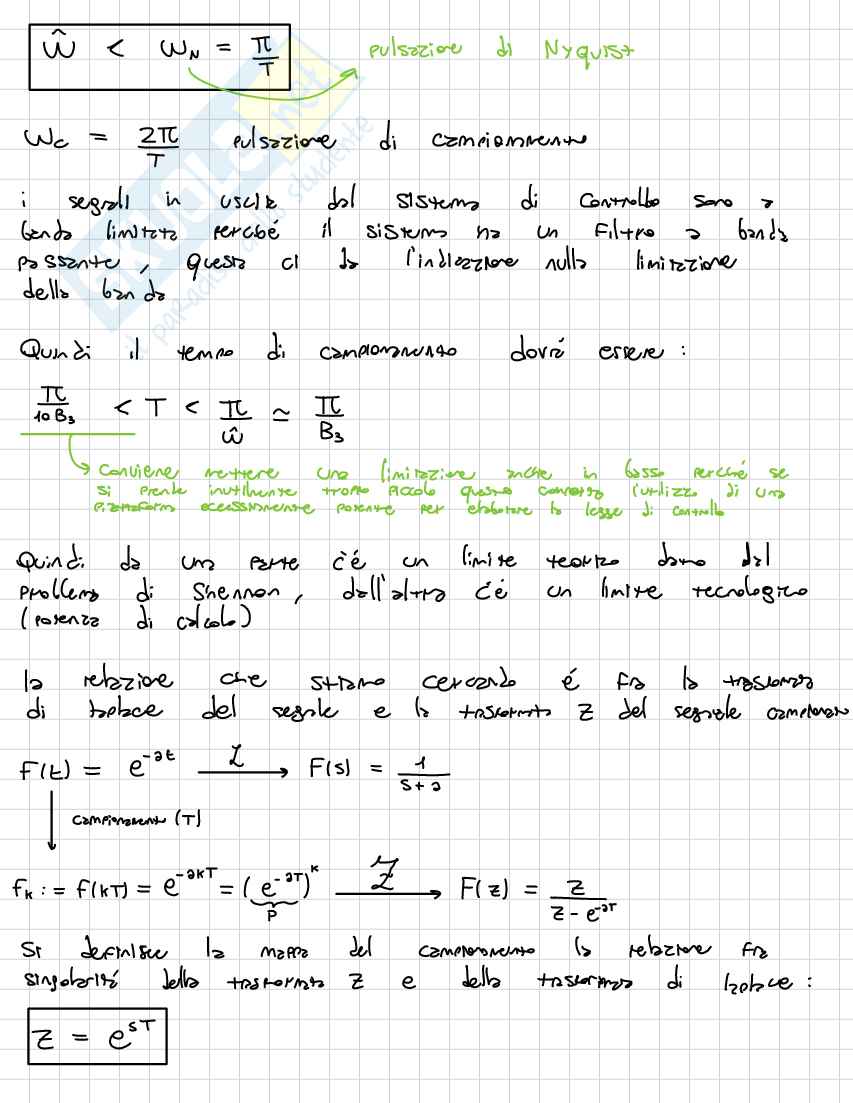 ŵ < ω_N = π/T pulsazione di Nyquist
ω_c = 2π/T pulsazione di campionamento
i segnali in uscita dal sistema di controllo sono a
banda limitata perché il sistema ha un filtro a banda
passante, questa ci da l'indicazione nulla limitazione
della banda
Quindi il tempo di campionamento dovrà essere:
π/(10 B₃) < T < π/ŵ ≃ π/B₃
Conviene mettere una limitazione anche in basso perché se
si prende inutilmente troppo piccolo questo comporta l'utilizzo di una
piattaforma eccessivamente potente per elaborare la legge di controllo
Quindi da una parte c'é un limite teorico dato dal
problema di Shannon, dall'altra c'é un limite tecnologico
(potenza di calcolo)
la relazione che stiamo cercando é fra la trasformata
di laplace del segnale e la trasformata Z del segnale campionato
f(t) = e^{-at} ℒ→ F(s) = 1/(s+a)
campionamento (T)
f_k := f(kT) = e^{-akT} = (e^{-aT})^k 𝒵→ F(z) = z/(z - e^{-aT})
p
Si definisce la mappa del campionamento la relazione fra
singolarità della trasformata Z e della trasformata di laplace:
z = e^{sT}
SKUOLA.net
il paradiso dello studente